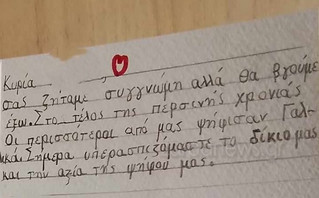 Κυρία
σας ζητάμε συγγνώμη αλλά θα βγούμε
έξω. Στο τέλος της περσινής χρονιάς
Οι περισσότεροι από μας ψήφισαν Γαλ-
λικά. Σήμερα υπερασπιζόμαστε το δίκιο μας
και την αξία της ψήφου μας.